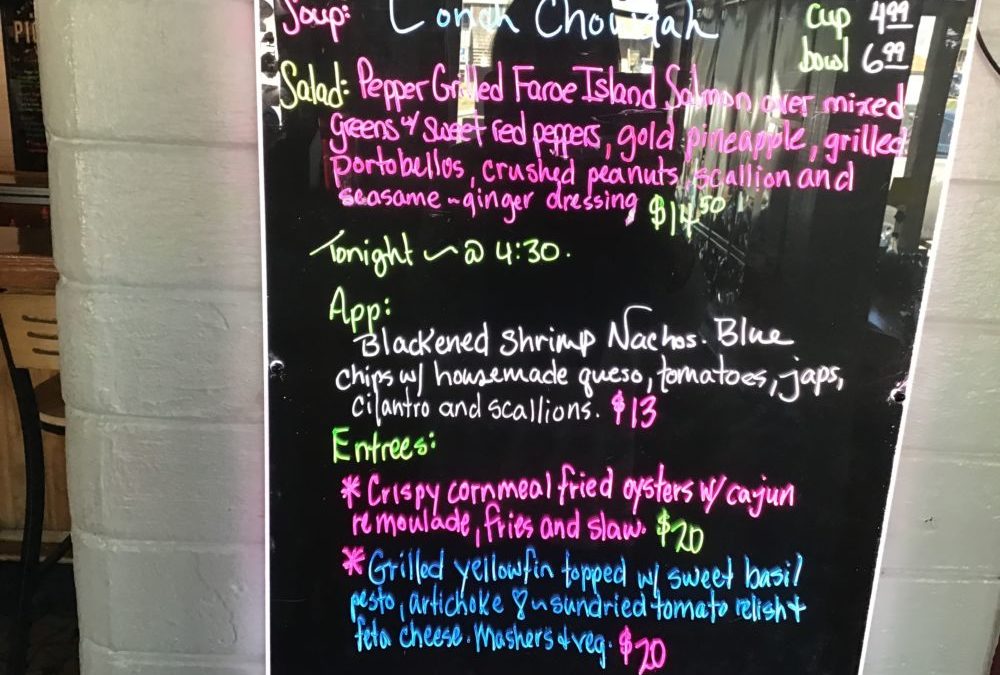 Soup: Conch Chowdah cup 4.99
bowl 6.99
Salad: Pepper Grilled Faroe Island Salmon over mixed
greens w/ sweet red peppers, gold pineapple, grilled
portobellos, crushed peanuts, scallion and
seasame-ginger dressing $14.50
Tonight ~ @ 4:30.
App:
Blackened Shrimp Nachos. Blue
chips w/ housemade queso, tomatoes, japs,
cilantro and scallions. $13
Entrees:
* Crispy cornmeal fried oysters w/ cajun
remoulade, fries and slaw. $20
* Grilled yellowfin topped w/ sweet basil
pesto, artichoke & sundried tomato relish +
feta cheese. Mashers + veg. $20